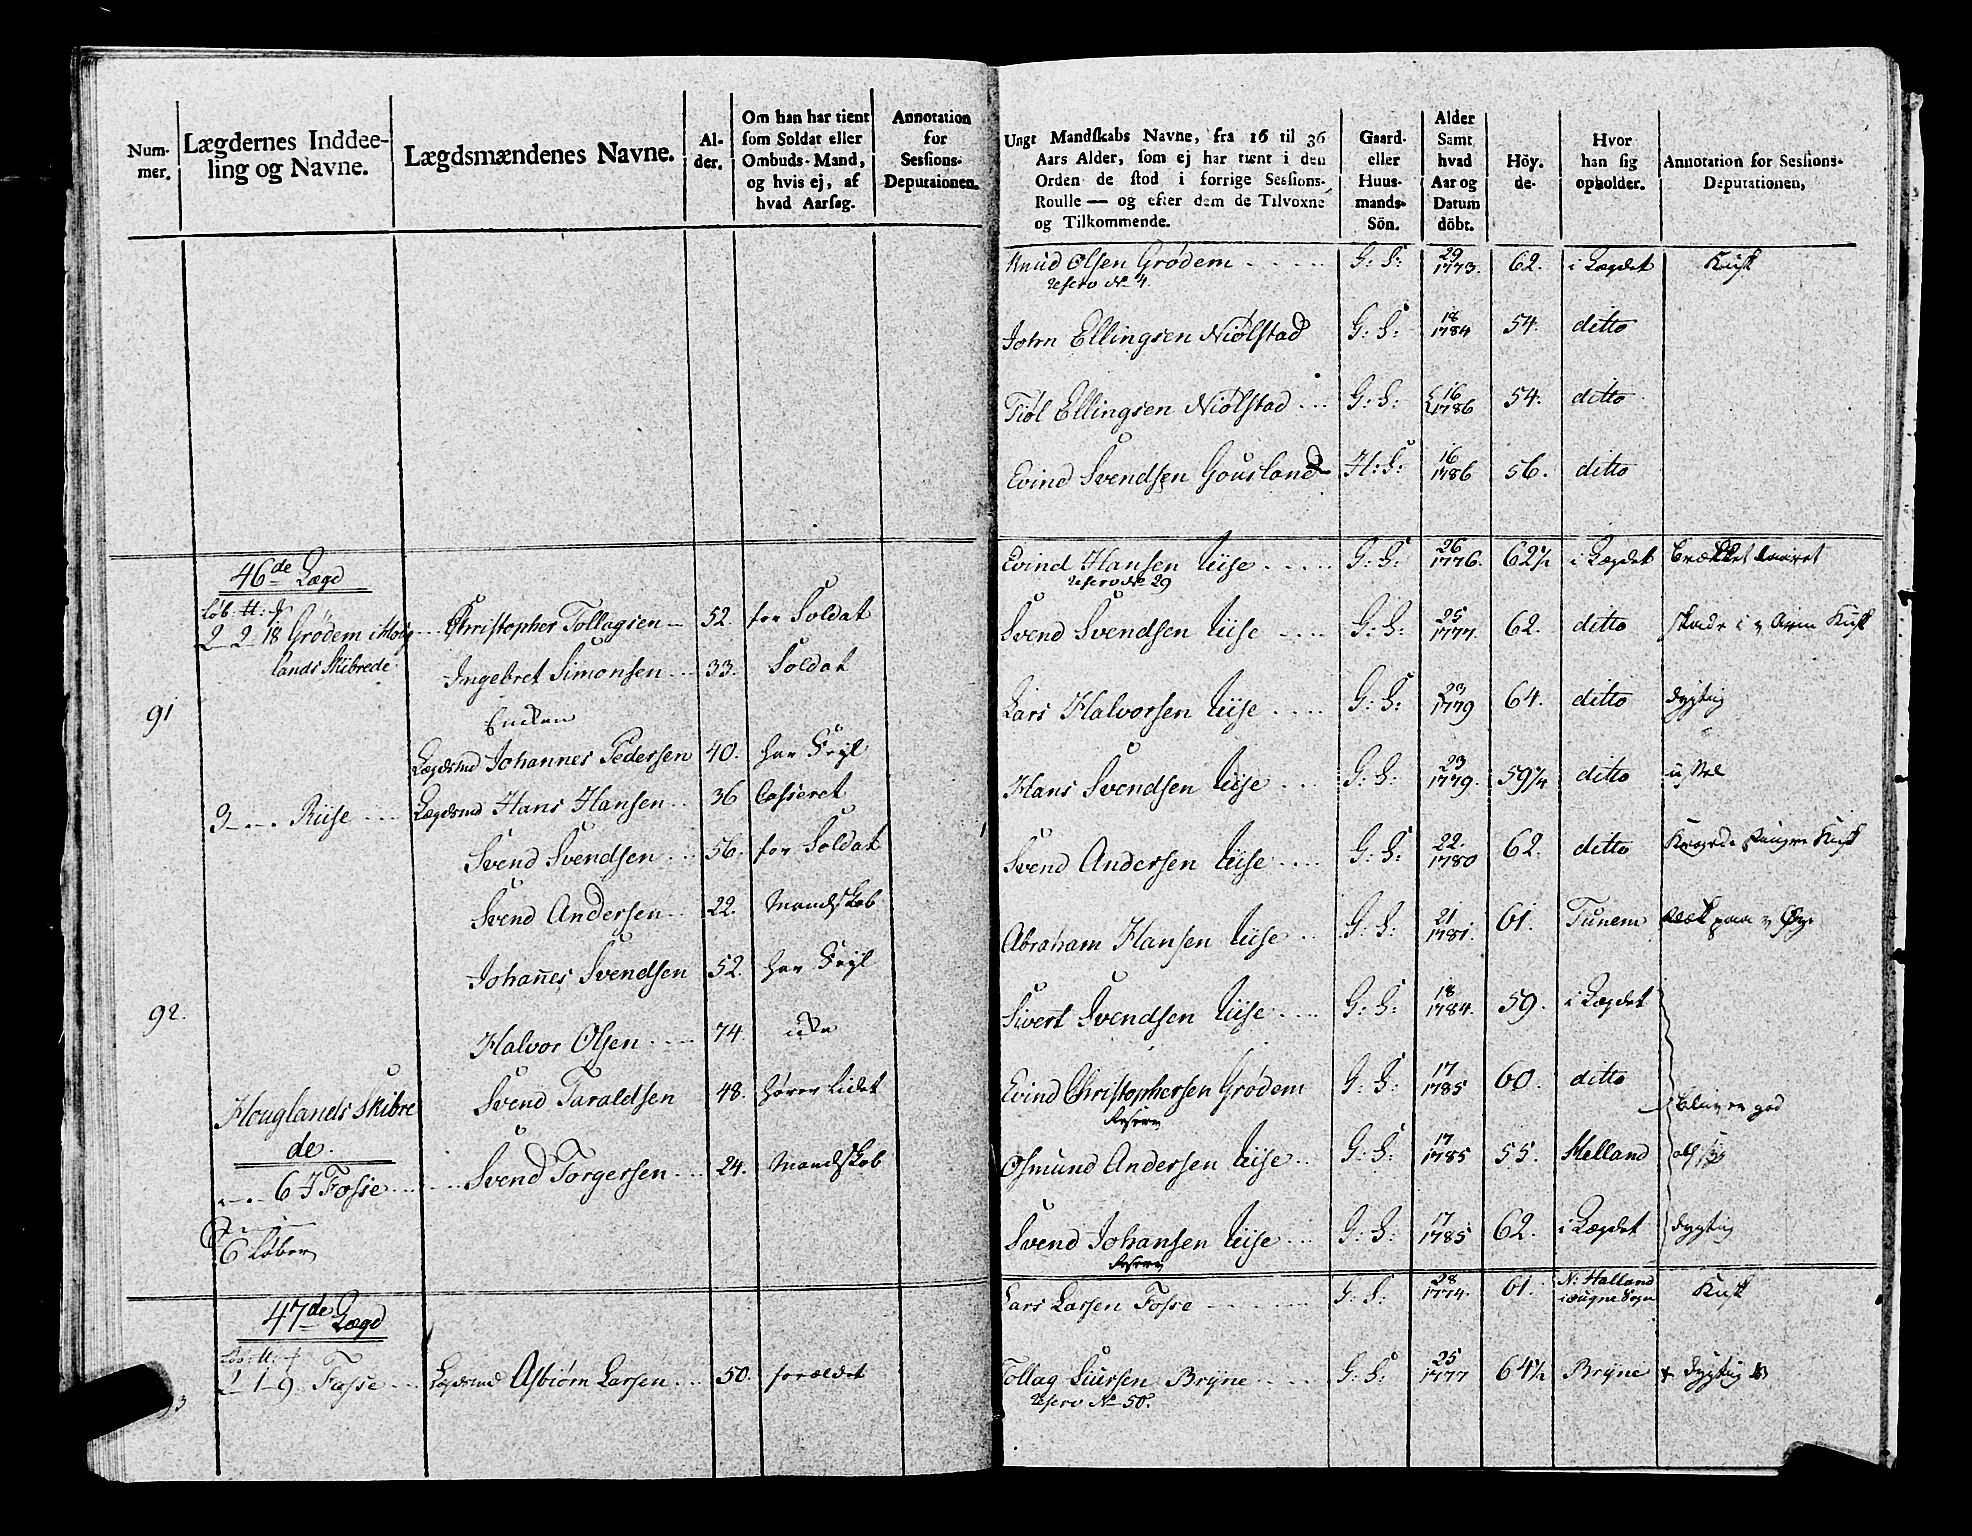 Num-
mer.
Lægdernes Inddee-
ling og Navne.
Lægdsmændenes Navne.
Al-
der.
Om han har tient
som Soldat eller
Ombuds-Mand,
og hvis ej, af
hvad Aarsag.
Annotation
for
Sessions-
Deputaionen.
46de Lægd
Løb: H:
2 2 18 Grødem i
lands Skibrede
Christopher Tollagsen 52. for Soldat
Ingebret Simonsen 33. Soldat
91
Enken
Lægdsmd Johannes Pedersen 40. har Fejl
3 Riise Lægdsmd Hans Hansen 36 Casseret
Svend Svendsen 56. for Soldat
Svend Andersen 22. Mandskab
Johannes Svendsen 52. har Fejl
92.
Halvor Olsen 74.
Svend Taraldsen 48. hører lidet
Houglands Skibre
de.
6 Fosse Svend Torgersen 24. Mandskab
6 Løber
47de Lægd
Løb: H:
2 1 9 Fosse Lægdsmd Asbiørn Larsen 50. forældet
Ungt Mandskabs Navne, fra 16 til 36
Aars Alder, som ej har tient i den
Orden de stod i forrige Sessions-
Roulle — og efter dem de Tilvoxne
og Tilkommende.
Gaard-
eller
Huus-
mands-
Sön.
Alder
Samt
hvad
Aar og
Datum
döbt.
Höy-
de-
Hvor
han sig
opholder.
Annotation for Sessions-
Deputationen,
Knud Olsen Grødem G: S: 29 1773. 62. i Lægdet
Reserv No 4.
John Ellingsen Niølstad G: S: 18 1784 54. ditto
Tiøl Ellingsen Niølstad G: S: 16 1786 54. ditto
Evind Svendsen Gousland H: S: 16 1786 56. ditto
Evind Hansen Riise G: S: 26 1776. 62½ i Lægdet brækket laaret
Reserv No 29
Svend Svendsen Riise G: S: 25 1777. 62. ditto Skade i v Arm
Lars Halvorsen Riise G: S: 23 1779 64. ditto dygtig
Hans Svendsen Riise G: S: 23 1779. 59¼ ditto
Svend Andersen Riise G: S: 22. 1780 62. ditto
Abraham Hansen Riise G: S: 21 1781. 61. Tunem paa v Øye
Sivert Svendsen Riise G: S: 18 1784. 59. i Lægdet
Evind Christophersen Grødem G: S: 17 1785 60. ditto
Reserv
bliver god
Osmund Andersen Riise G: S: 17 1785 55. Melland
Svend Johansen Riise G: S: 17 1785 62. i Lægdet dygtig
Reserv
Lars Larsen Fosse G: S: 28 1774. 61. N: Halland
Sogn
Tollag Siursen Bryne G: S: 25 1777 64½ Bryne dygtig
Reserv No 50.